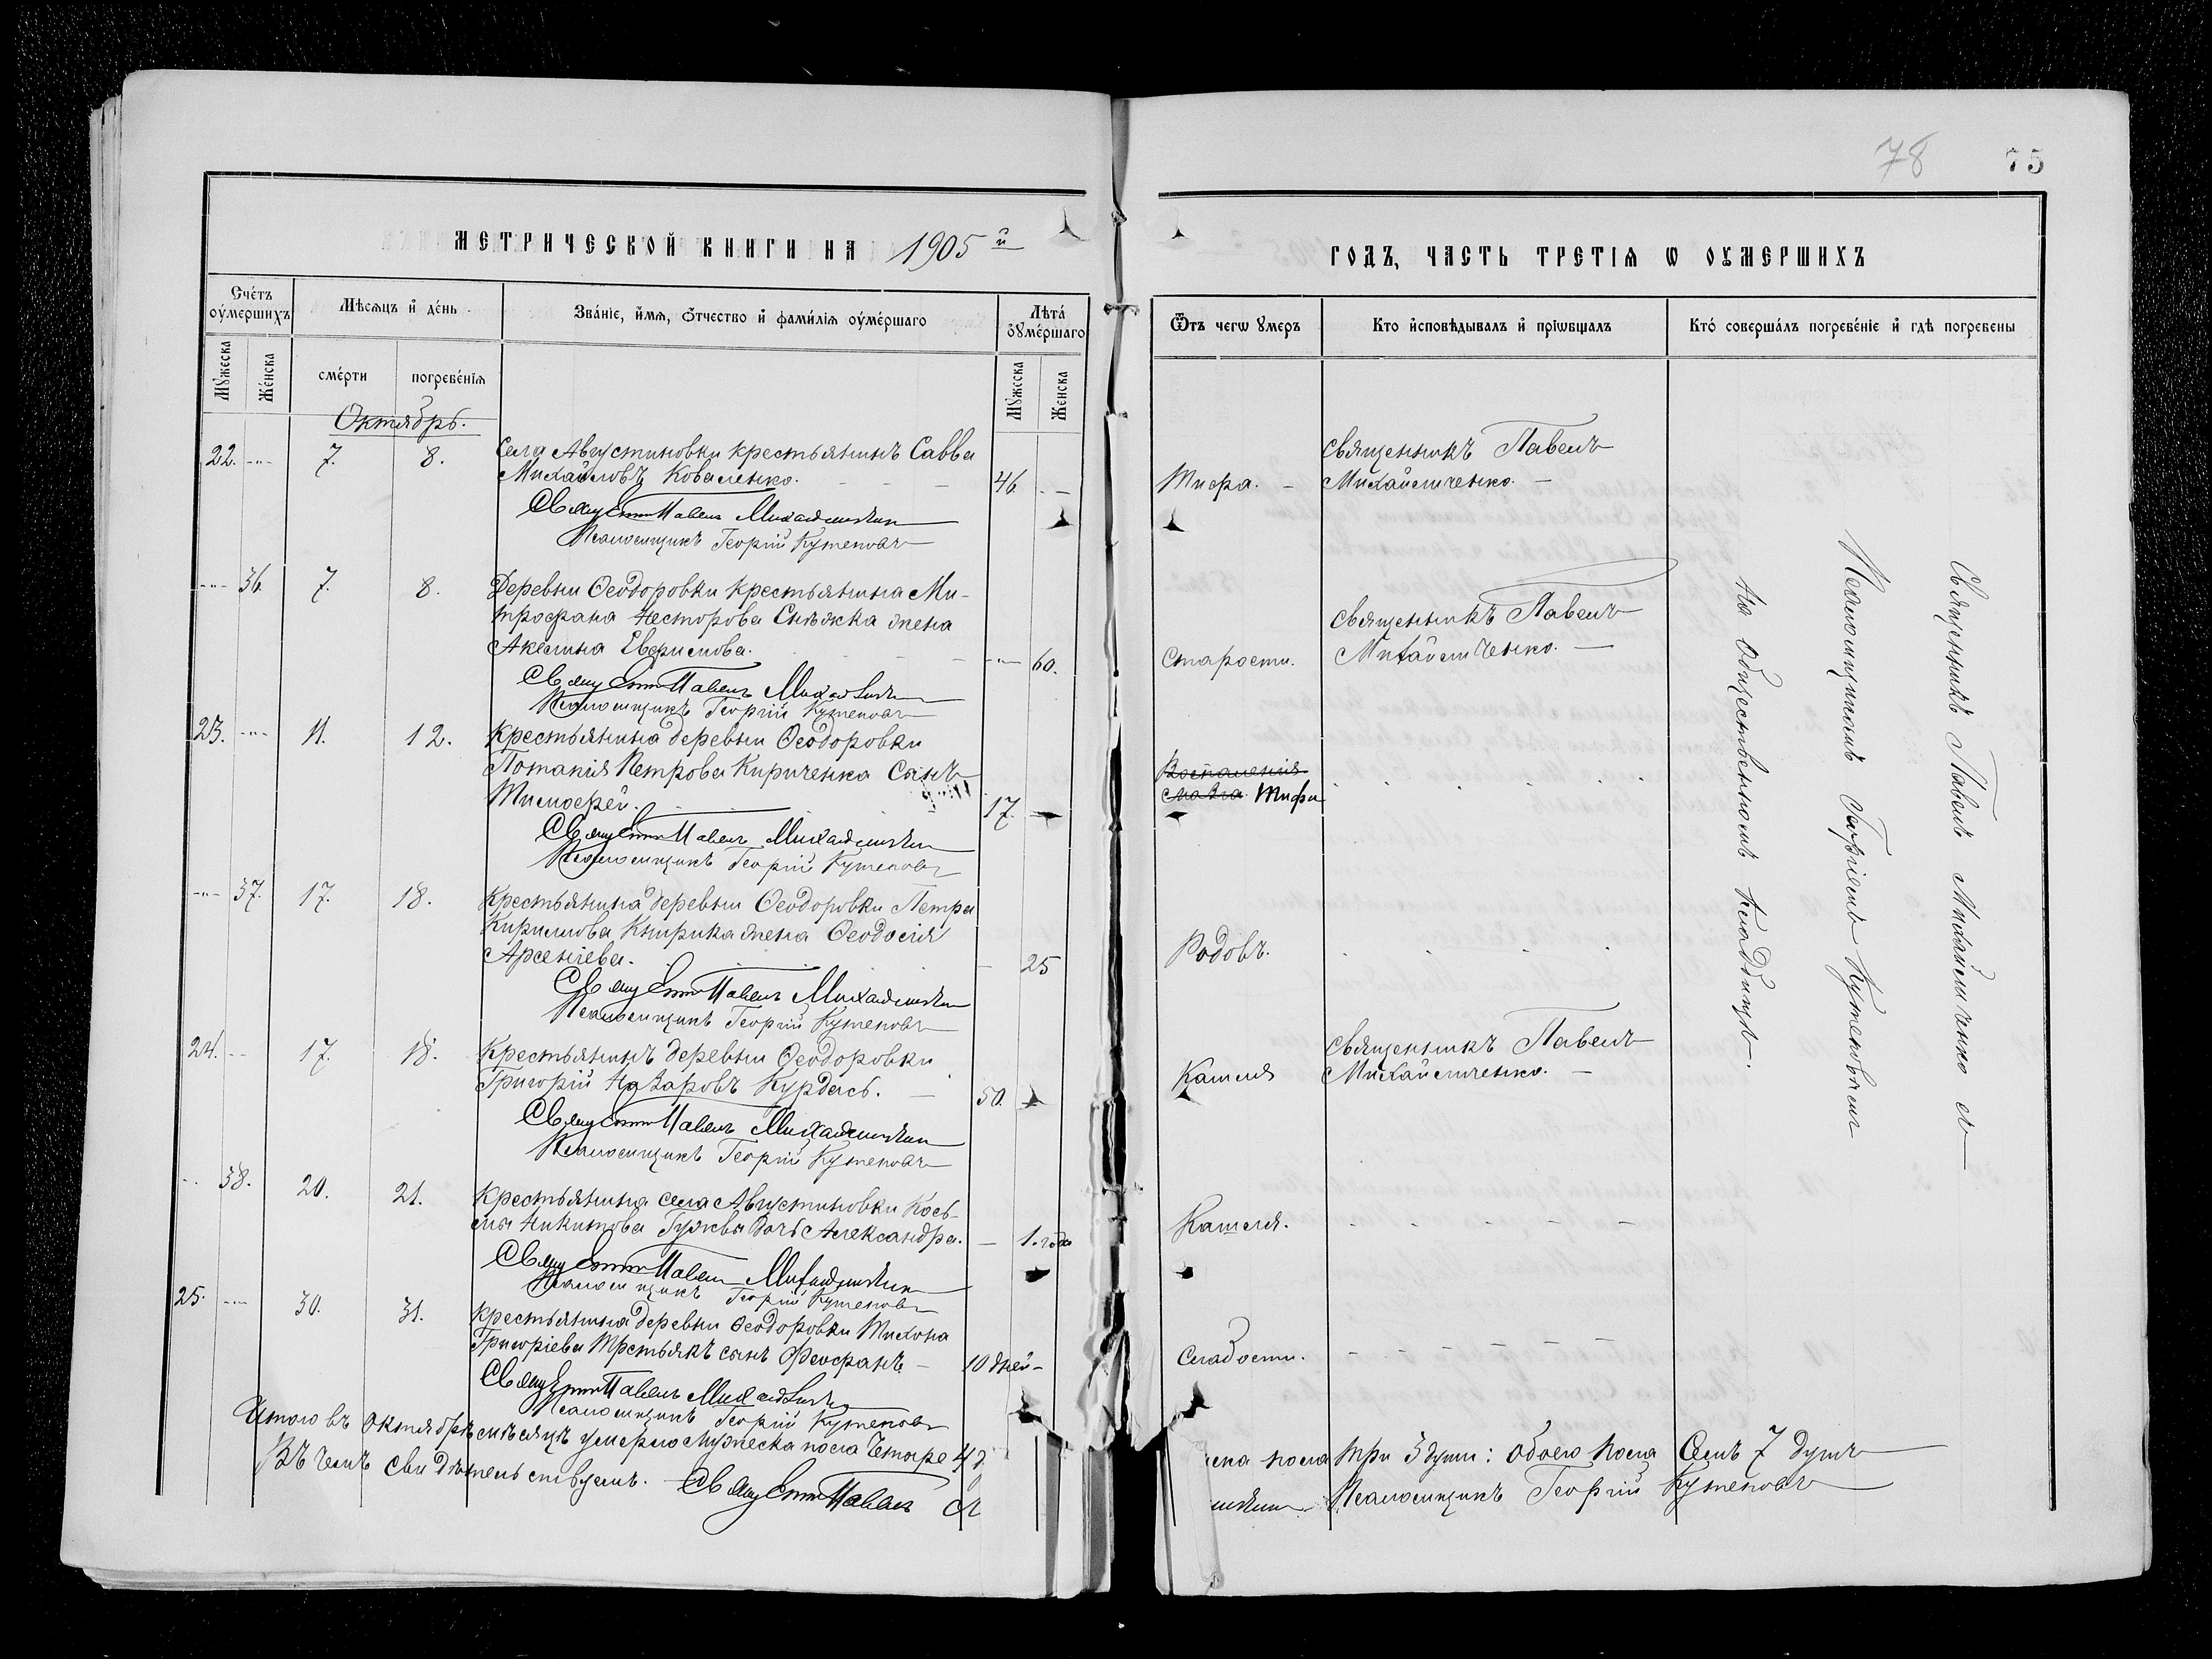 78
75
МЕТРИЧЕСКОЙ КНИГИ НА 1905й
ГОДЪ, ЧАСТЬ ТРЕТІѦ Ѡ ОУМЕРШИХЪ
Счётъ оумершихъ
Мѣсяцъ и день
Званіе, имѧ, отчество и фамиліѧ оумершаго
Лѣта оумершаго
Мужеска
Женска
смерти
погребеніѧ
Мужеска
Женска
Ѿтъ чегѡ умеръ
Кто исповѣдывалъ и прїѡбщалъ
Кто совершалъ погребеніе и гдѣ погребены
Октябрь.
22. -"- 7. 8.
Села Августиновки крестьянинъ Савва
Михайловъ Коваленко. 46. -
Тифа. -
Священникъ Павелъ
Михайличенко. -
Священникъ Павелъ Михайличенко
Псаломщикъ Георгій Кутеповъ
-"- 36. 7. 8.
Деревни Ѳеодоровки крестьянина Ми-
трофана Несторова Снѣжка жена
Акелина Евфимова. -"- 60.
Старости.
Священникъ Павелъ
Михайличенко. -
Священникъ Павелъ Михайличенко
Псаломщикъ Георгій Кутеповъ
23. -"- 11. 12.
Крестьянина деревни Ѳеодоровки
Потапія Петрова Кириченка сынъ
Тимофей. 17. -
Воспаленія
Тифа
Священникъ Павелъ Михайличенко
Псаломщикъ Георгій Кутеповъ
-"- 37. 17. 18.
Крестьянина деревни Ѳеодоровки Петра
Кириллова жена Ѳеодосія
Арсеніева. - 25
Родовъ.
Священникъ Павелъ Михайличенко
Псаломщикъ Георгій Кутеповъ
24. -- 17. 18.
Крестьянинъ деревни Ѳеодоровки
Григорій Назаровъ Курдась. - 50. -
Кашля
Священникъ Павелъ
Михайличенко. -
Священникъ Павелъ Михайличенко
Псаломщикъ Георгій Кутеповъ
38. 20. 21.
Крестьянина села Августиновки Кось-
мы Никитова Гужвы дочь Александра. - 1. года
Кашля.
Священникъ Павелъ Михайличенко
Псаломщикъ Георгій Кутеповъ
25. -"- 30. 31.
Крестьянина деревни Ѳеодоровки Тихона
Григоріева Третьякъ сынъ Феофанъ - 10 дней -
Слабости.
Священникъ Павелъ Михайличенко
Псаломщикъ Георгій Кутеповъ
Священникъ Павелъ Михайличенко съ
Псаломщикомъ Георгіемъ Кутеповымъ
На общественномъ кладбищѣ.
Итого въ октябрѣ мѣсяцѣ умерло мужеска пола четыре 4 д
ска пола три 3 души: обоего пола Семь 7 душъ
Въ чемъ свидѣтельствуемъ. Священникъ Павелъ М
Псаломщикъ Георгій Кутеповъ